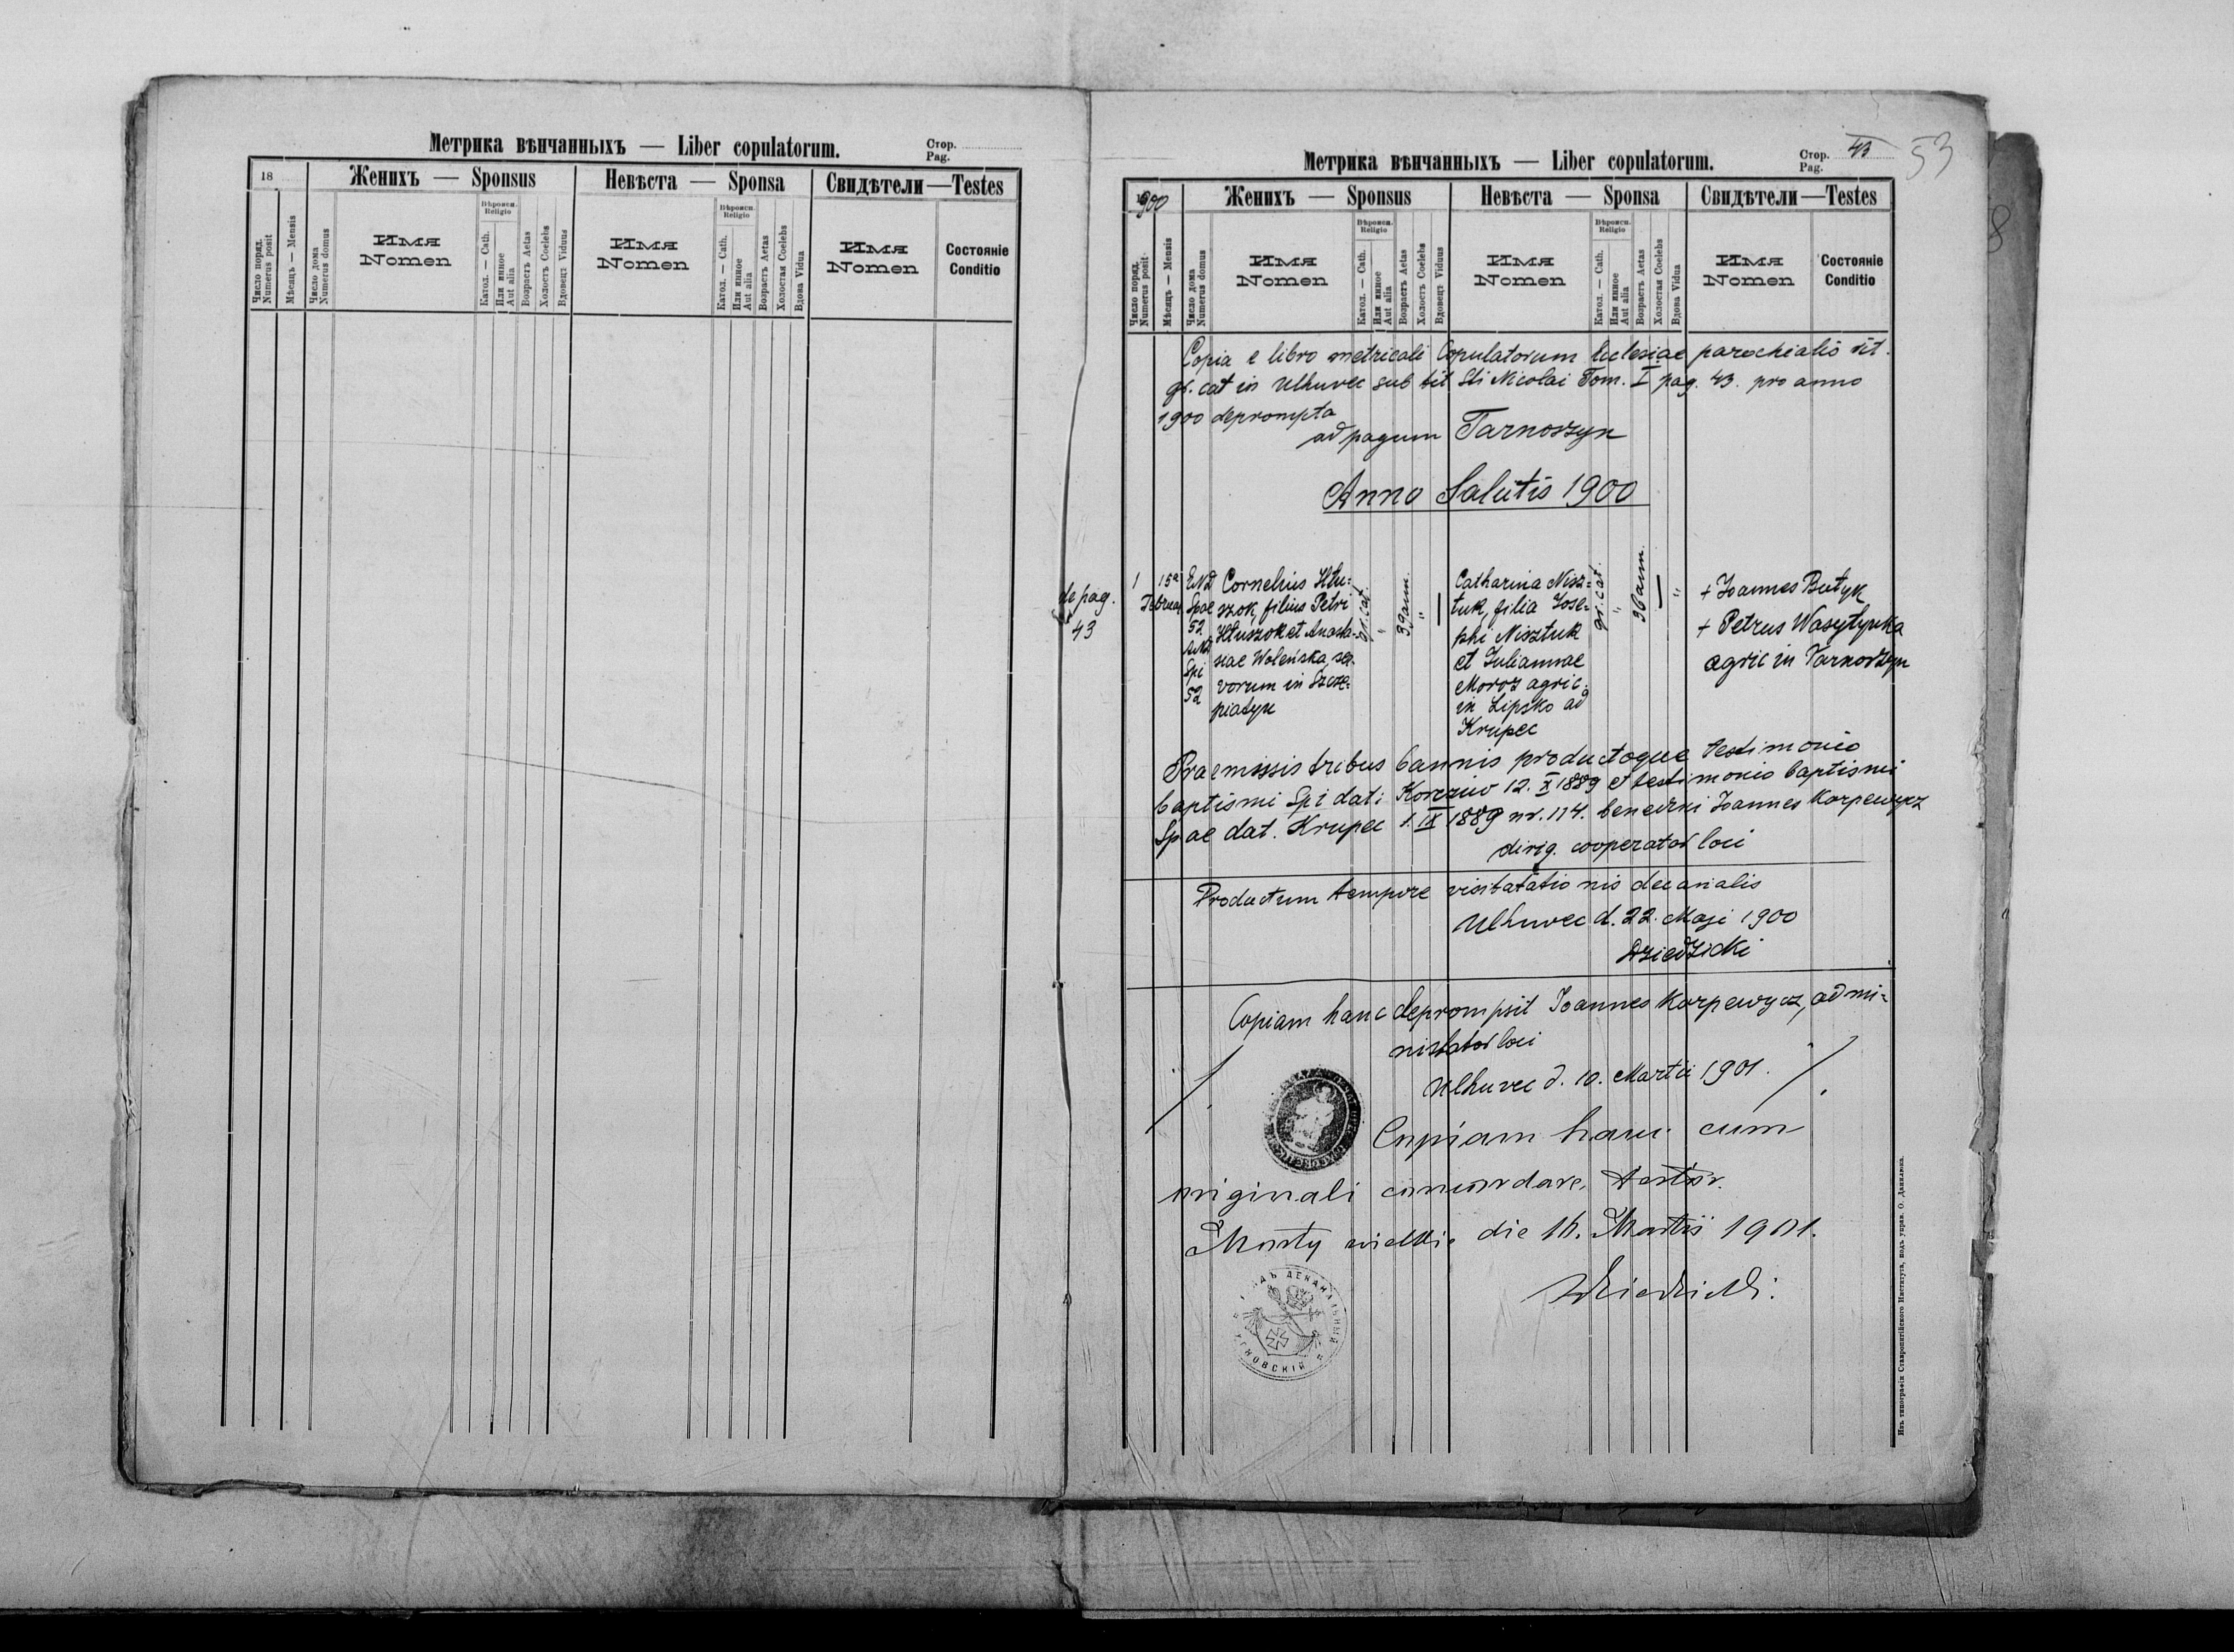 Метрика вѣнчанныхъ — Liber copulatorum.
Стор.
Pag.
18
Женихъ — Sponsus
Невѣста — Sponsa
Свидѣтели—Testes
Число поряд.
Numerus posit
Мѣсяцъ — Mensis
Число дома
Numerus domus
Имя
Nomen
Вѣроисп.
Religio
Катол. — Cath.
Или инное
Aut alia
Возрастъ Aetas
Холостъ Coelebs
Вдовецъ Viduus
Имя
Nomen
Вѣроисп.
Religio
Катол. — Cath.
Или инное
Aut alia
Возрастъ Aetas
Холостая Coelebs
Вдова Vidua
Имя
Nomen
Состояніе
Conditio
Метрика вѣнчанныхъ — Liber copulatorum.
Стор.
Pag.
43
53
1900
Женихъ — Sponsus
Невѣста — Sponsa
Свидѣтели—Testes
Число поряд.
Numerus posit
Мѣсяцъ — Mensis
Число дома
Numerus domus
Имя
Nomen
Вѣроисп.
Religio
Катол. — Cath.
Или инное
Aut alia
Возрастъ Aetas
Холостъ Coelebs
Вдовецъ Viduus
Имя
Nomen
Вѣроисп.
Religio
Катол. — Cath.
Или инное
Aut alia
Возрастъ Aetas
Холостая Coelebs
Вдова Vidua
Имя
Nomen
Состояніе
Conditio
Copia e libro metricali Copulatorum Ecclesiae parochialis rit.
gr. cat in Ulhuvec sub tit Sti Nicolai Tom. I pag. 43. pro anno
1900 deprompta
ad pagum Tarnoszyn
Anno Salutis 1900
de pag.
43
1
15a
Februar
Spae
52
Spi
52
Cornelius Htu=
szok, filius Petri
Htuszok et Anasta-
siae Woleńska, ser-
vorum in Szcze-
piatyn
gr. cat.
"
39 ann.
"
Catharina Nisz=
tuk, filia Jose=
phi Nisztuk
et Juliannae
Moroz agric.
in Lipsko ad
Krupec
gr. cat.
"
36 ann.
"
+ Joannes Butyk
+ Petrus Wasytynka
agric in Tarnoszyn
Praemissis tribus bannis productoque testimonio
baptismi Spi dati: Korcziw 12. X 1889 et testimonio baptismi
Spae dat. Krupec 1. IX 1889 nr. 114. benedixi Joannes Karpewycz
dirig. cooperator loci
Productum tempore visitatationis decanalis
Ulhuvec d. 22. Maji 1900
Dziedzicki
Copiam hanc depromsit Joannes Karpewycz, admi=
nistrator loci
Ulhuvec d. 10. Martii 1901.
Copiam hanc cum
originali concordare, testor.
Mosty wielkie die 16. Martii 1901.
Dziedzicki:
ДЕКАНАЛЬНЫЙ
УГНОВСКІЙ
Изъ типографіи Ставропигійского Института, подъ управ. О. Данилюка.